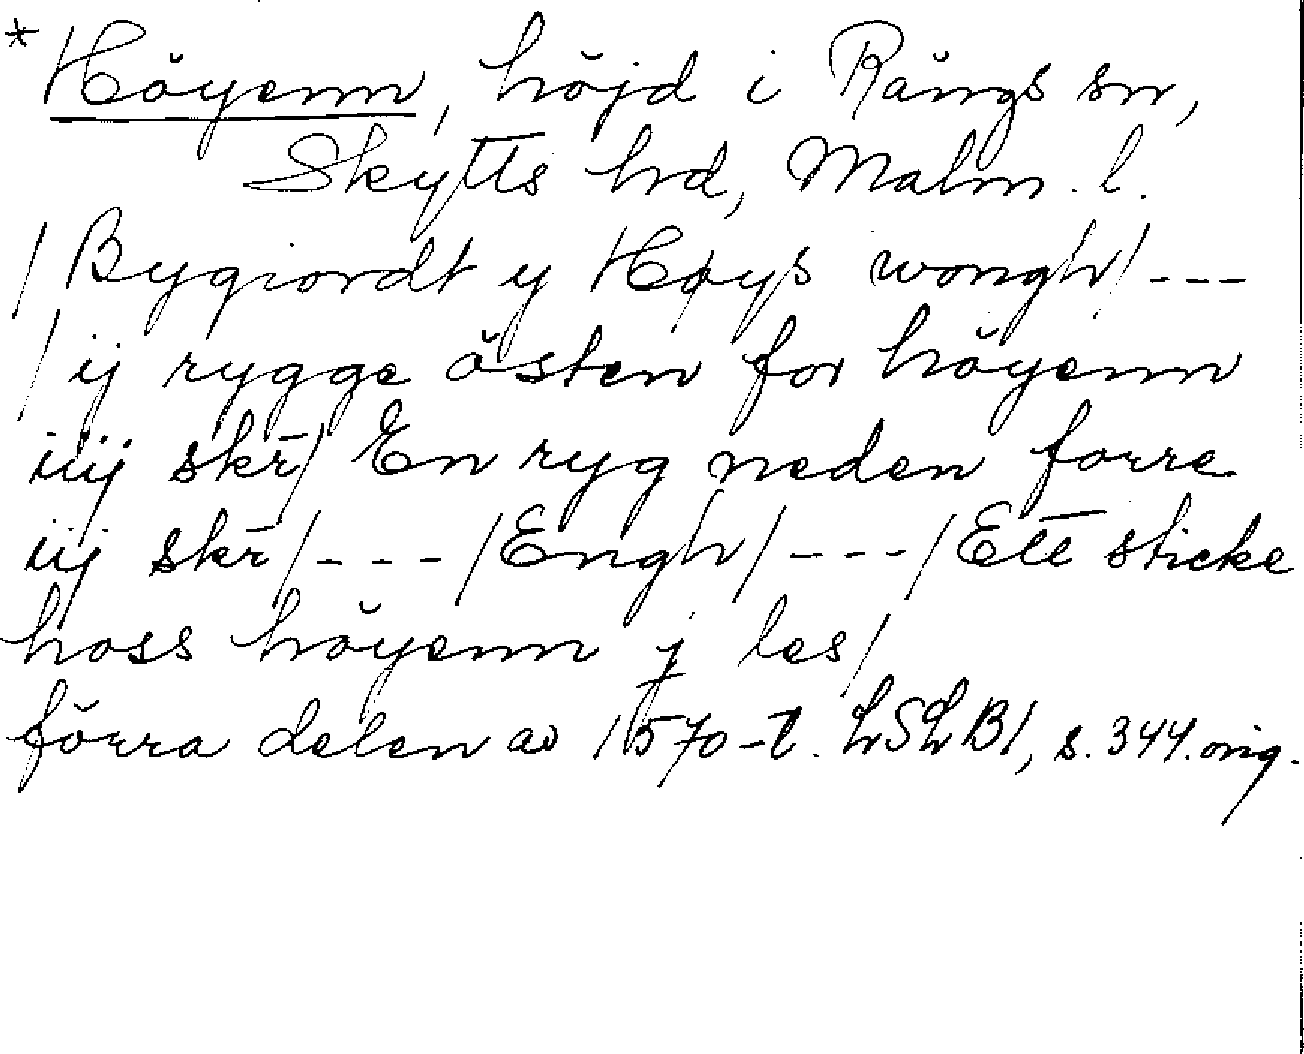 *Höyenn, höjd i Rängs sn,
Skytts hd, Malm. l.
/Bygiordt y Høys wongh/---
/ij rygge östen for höyenn
iiij skr̄/ En ryg neden forre
iij skr̄/---/Engh/---/Ett sticke
hoss höyenn j les/
förra delen av 1570-t. LSLB1, s. 344. orig.